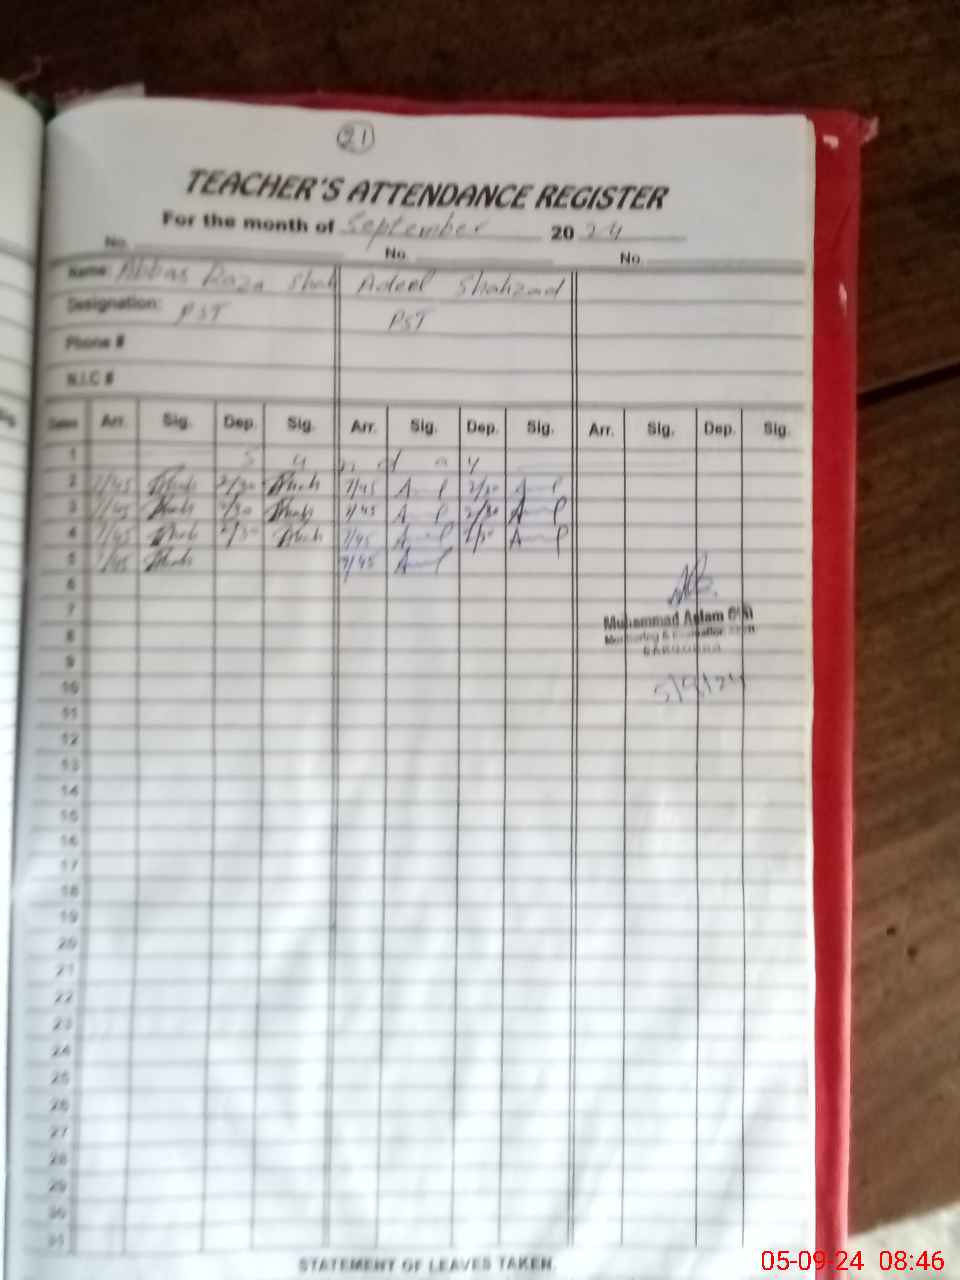 21
TEACHER'S ATTENDANCE REGISTER
For the month of September 2024
No. No. No.
Name: Abbas Raza Shah Adeel Shahzad
Designation: PST PST
Phone #
N.I.C #
Dates Arr. Sig. Dep. Sig. Arr. Sig. Dep. Sig. Arr. Sig. Dep. Sig.
1 S u n d a y
2 7/45 2/30 7/45 2/30
3 7/45 2/30 7/45 2/30
4 7/45 2/30 7/45 2/30
5 7/45 7/45
6
7
Muhammad Aslam
8
Monitoring & Evaluation
9
SARGODHA
10
5/9/24
11
12
13
14
15
16
17
18
19
20
21
22
23
24
25
26
27
28
29
30
31
STATEMENT OF LEAVES TAKEN.
05-09-24 08:46